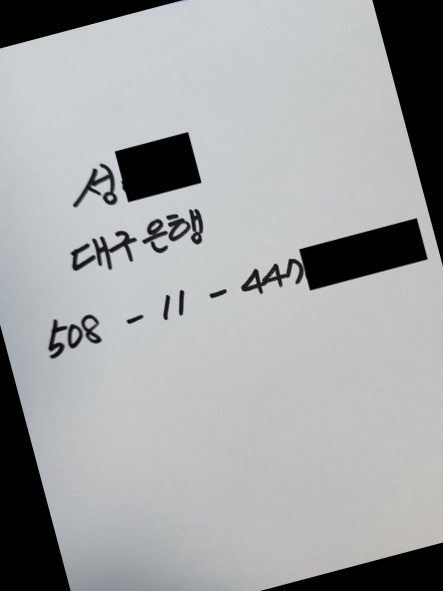 성
대구은행
508 - 11 - 447